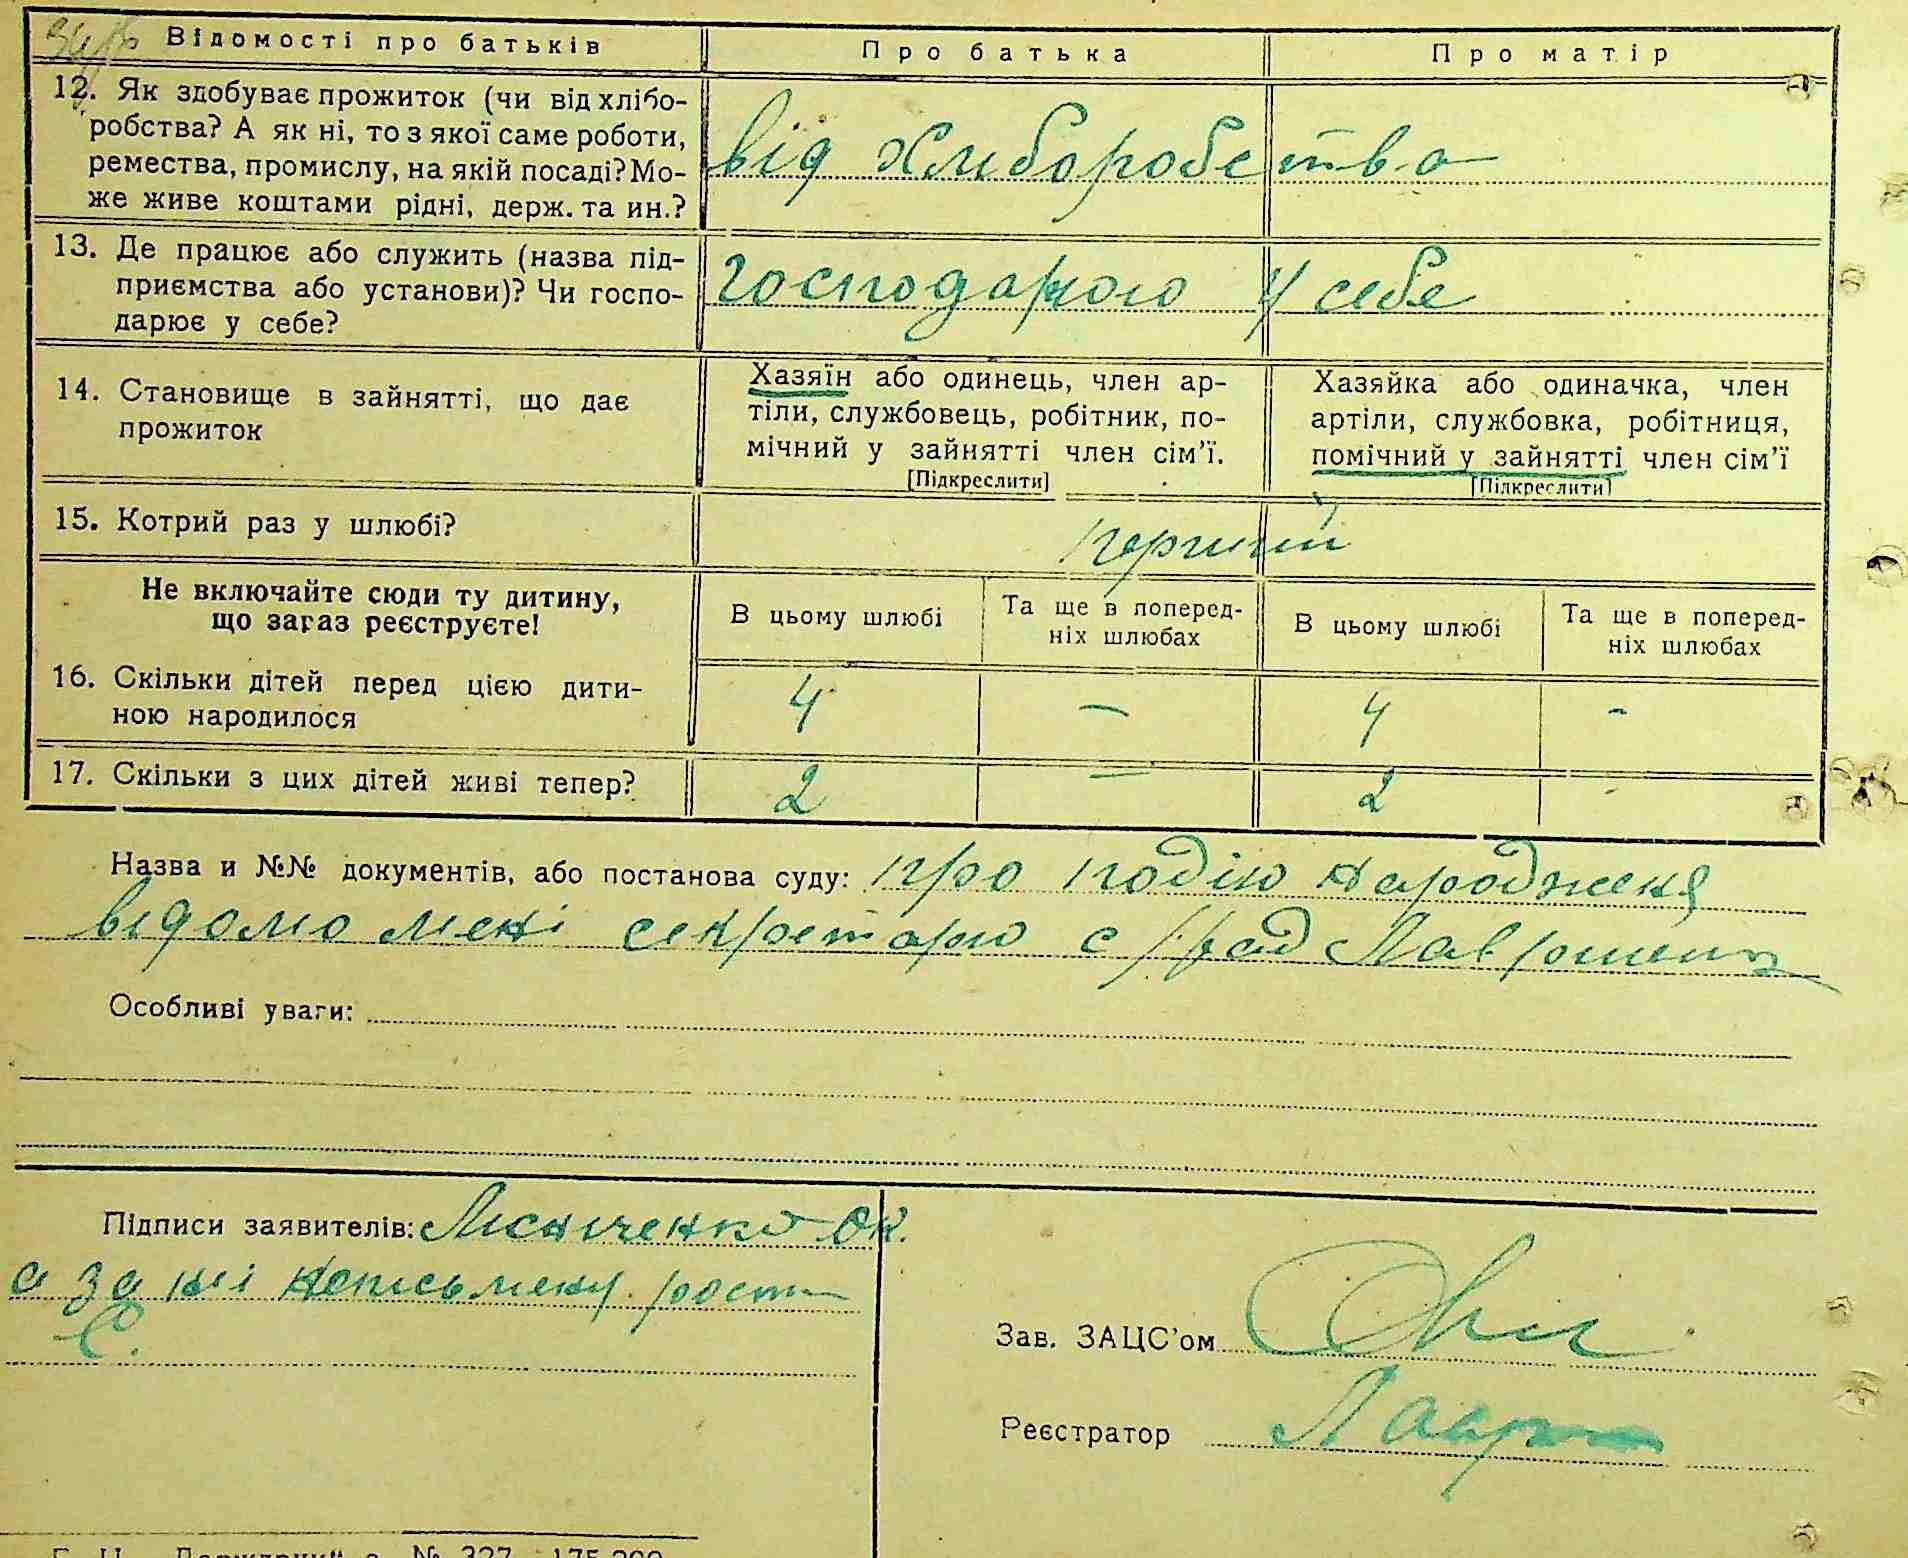 Відомості про батьків
Про батька
Про матір
12. Як здобуває прожиток (чи від хлібо-
робства? А як ні, то з якої саме роботи,
ремества, промислу, на якій посаді? Мо-
же живе коштами рідні, держ. та ин.?
від хліборобства
13. Де працює або служить (назва під-
приємства або установи)? Чи госпо-
дарює у себе?
господарюю у себе
14. Становище в зайнятті, що дає
прожиток
Хазяїн або одинець, член ар-
тіли, службовець, робітник, по-
мічний у зайнятті член сім’ї.
[Підкреслити]
Хазяйка або одиначка, член
артіли, службовка, робітниця,
помічний у зайнятті член сім’ї
[Підкреслити]
15. Котрий раз у шлюбі?
перший
Не включайте сюди ту дитину,
що зараз реєструєте!
В цьому шлюбі
Та ще в поперед-
ніх шлюбах
В цьому шлюбі
Та ще в поперед-
ніх шлюбах
16. Скільки дітей перед цією дити-
ною народилося
4 — 4 -
17. Скільки з цих дітей живі тепер?
2 — 2
Назва и №№ документів, або постанова суду: про подію народженя
відомо мені секретарю с/рад
Особливі уваги:
Підписи заявителів:
а за неі неписьмену рост
С.
Зав. ЗАЦС’ом
Реєстратор Лавр
№ 327 175.200